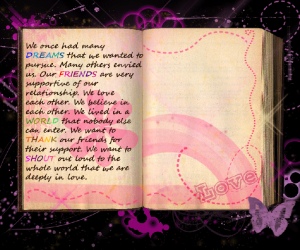 We once had many
DREAMS that we wanted to
pursue. Many others envied
us. Our FRIENDS are very
supportive of our
relationship. We love
each other. We believe in
each other. We lived in a
WORLD that nobody else
can enter. We want to
THANK our friends for
their support. We want to
SHOUT out loud to the
whole world that we are
deeply in love.
Love